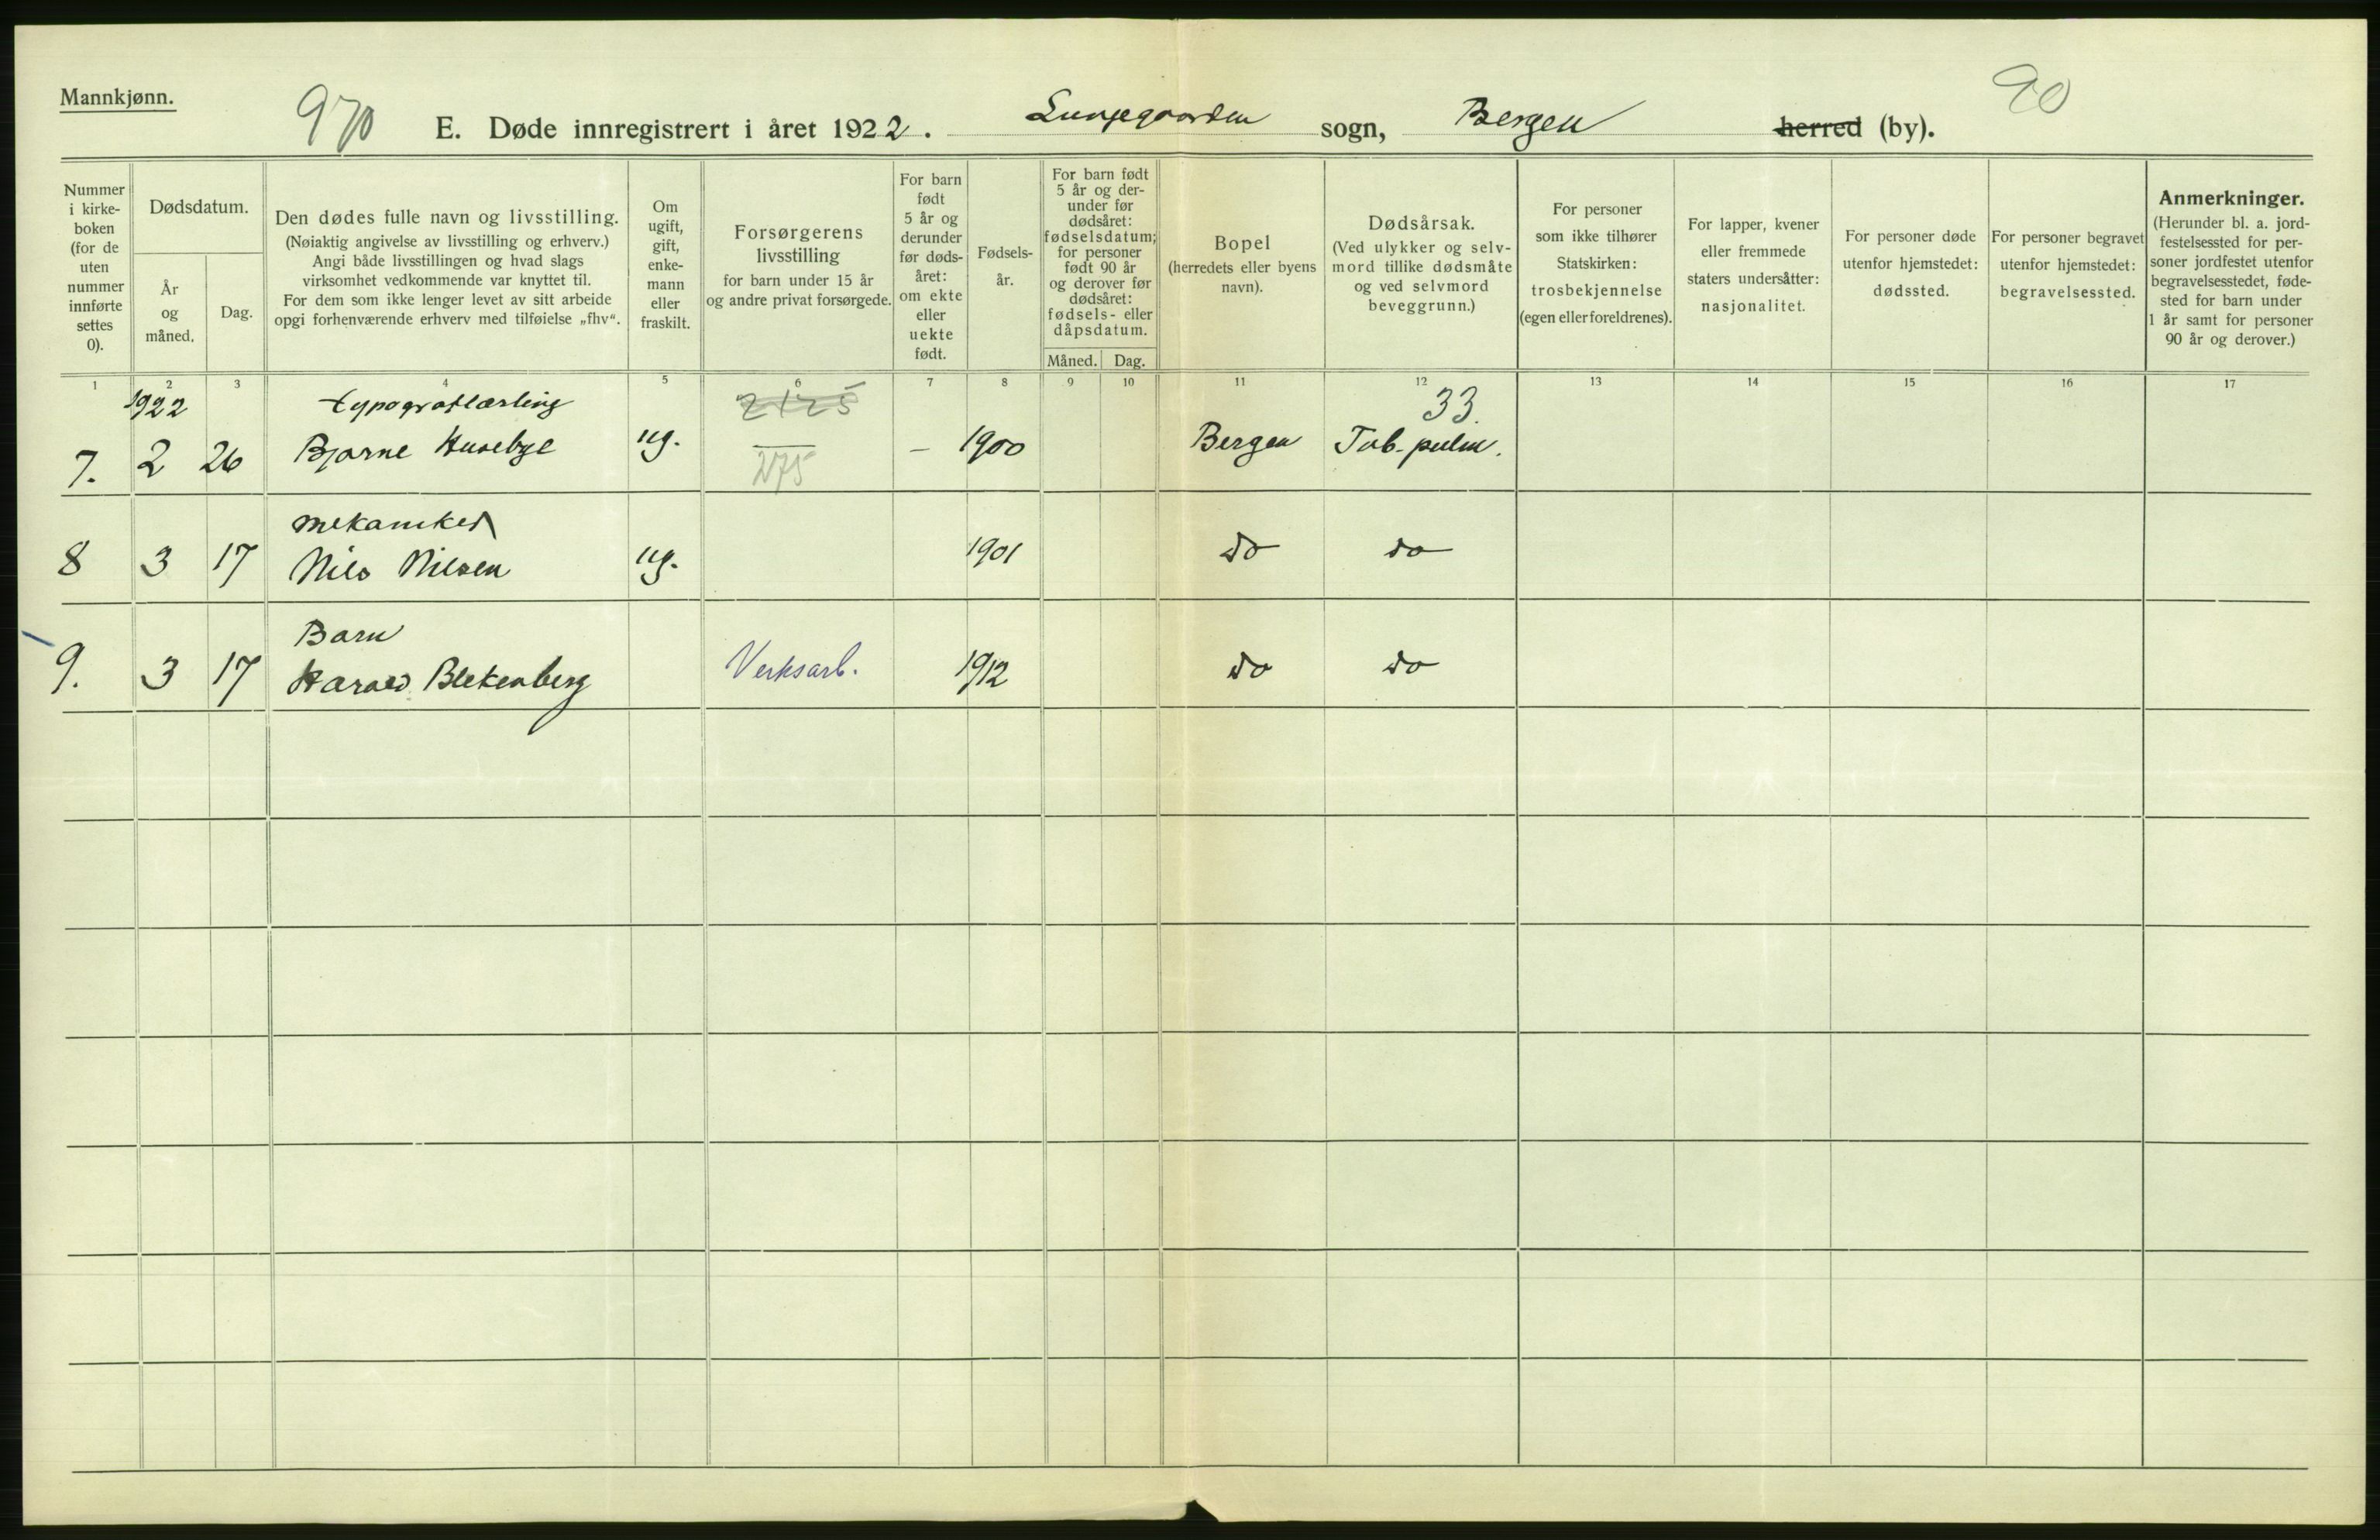 Mannkjønn.
970
90
E. Døde innregistrert i året 1922. Lungegaarden sogn, Bergen herred (by).
Nummer
i kirke-
boken
(for de
uten
nummer
innførte
settes
0).
Dødsdatum.
År
og
måned.
Dag.
Den dødes fulle navn og livsstilling.
(Nøiaktig angivelse av livsstilling og erhverv.)
Angi både livsstillingen og hvad slags
virksomhet vedkommende var knyttet til.
For dem som ikke lenger levet av sitt arbeide
opgi forhenværende erhverv med tilføielse „fhv“.
Om
ugift,
gift,
enke-
mann
eller
fraskilt.
Forsørgerens
livsstilling
for barn under 15 år
og andre privat forsørgede.
For barn
født
5 år og
derunder
før døds-
året:
om ekte
eller
uekte
født.
Fødsels-
år.
For barn født
5 år og der-
under før
dødsåret:
fødselsdatum;
for personer
født 90 år
og derover før
dødsåret:
fødsels- eller
dåpsdatum.
Måned. Dag.
Bopel
(herredets eller byens
navn).
Dødsårsak.
(Ved ulykker og selv-
mord tillike dødsmåte
og ved selvmord
beveggrunn.)
For personer
som ikke tilhører
Statskirken:
trosbekjennelse
(egen eller foreldrenes).
For lapper, kvener
eller fremmede
staters undersåtter:
nasjonalitet.
For personer døde
utenfor hjemstedet:
dødssted.
For personer begravet
utenfor hjemstedet:
begravelsessted.
Anmerkninger.
(Herunder bl. a. jord-
festelsessted for per-
soner jordfestet utenfor
begravelsesstedet, føde-
sted for barn under
1 år samt for personer
90 år og derover.)
1 2 3 4 5 6 7 8 9 10 11 12 13 14 15 16 17
1922 typograflærling 2125 33.
7. 2 26 Bjarne Husebye ug. — 1900 Bergen Tub. pulm.
275
mekaniker
8 3 17 Nils Nilsen ug. 1901 do do
Barn
9. 3 17 Harald Blekenberg Verksarb. 1912 do do